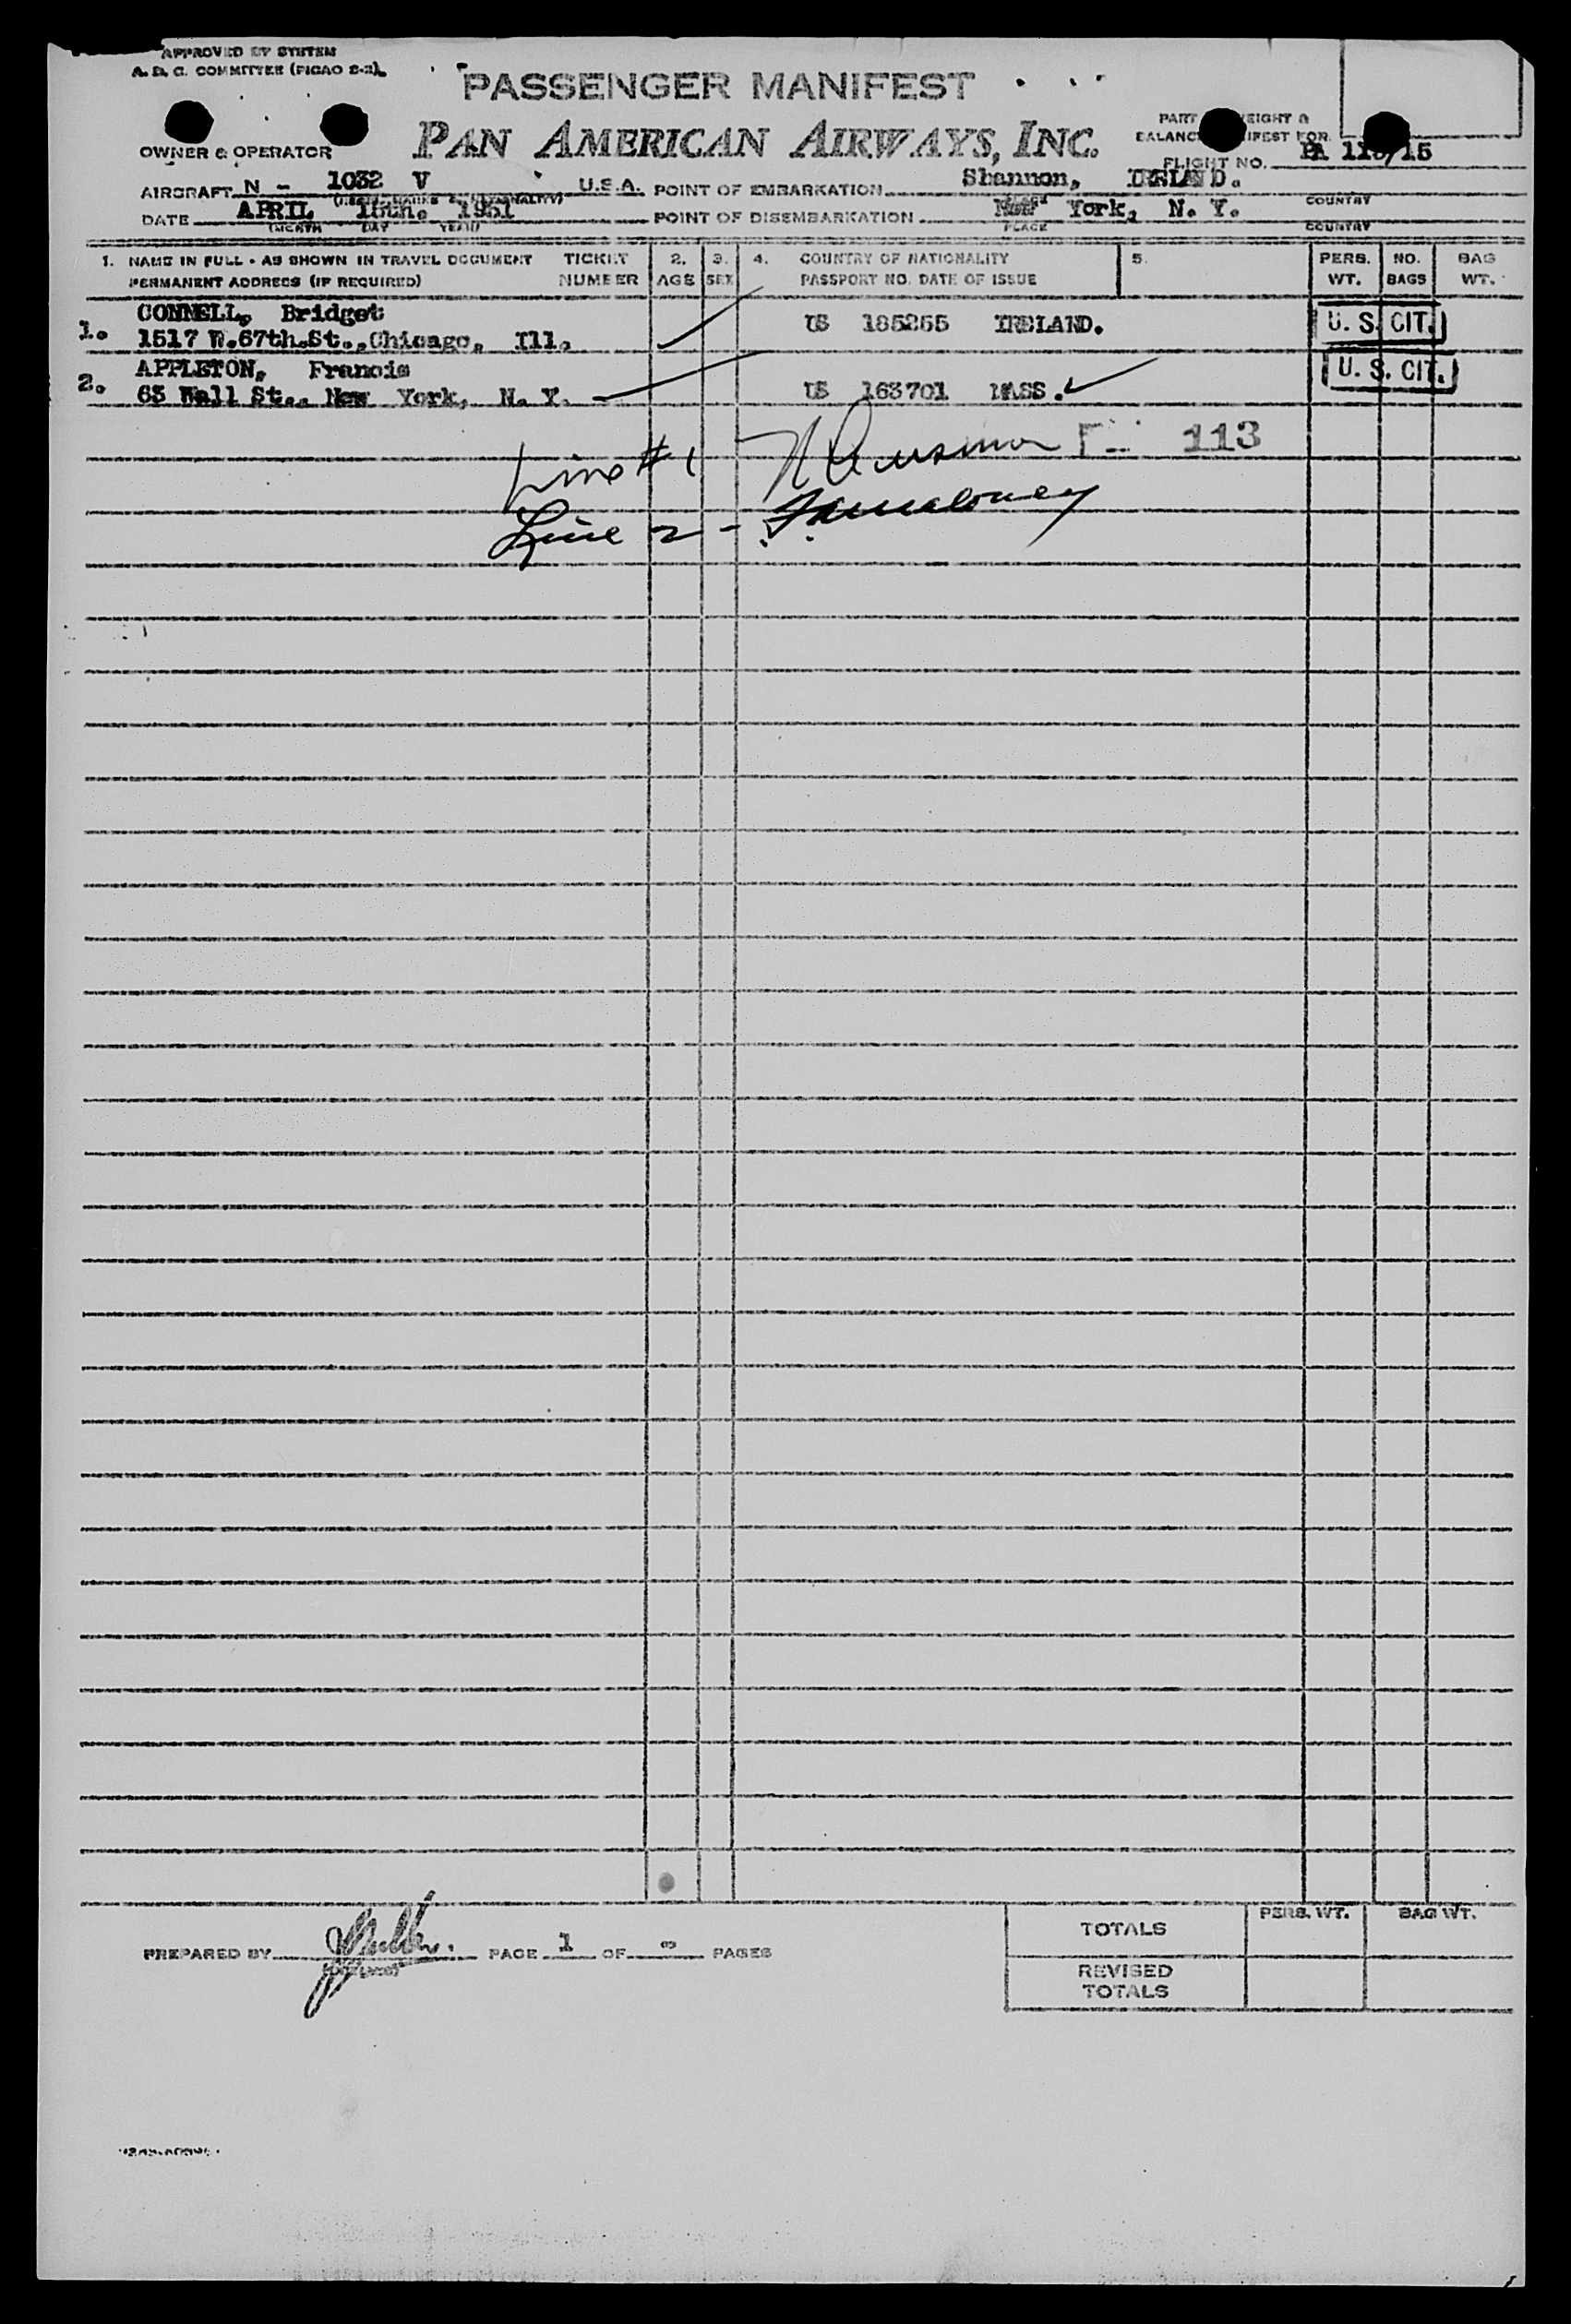 APPROVED BY SYSTEM
A. D. C. COMMITTEE (PICAO 2-2)
PASSENGER MANIFEST
PAN AMERICAN AIRWAYS, INC.
OWNER & OPERATOR
PART WEIGHT &
BALANCE MANIFEST FOR
FLIGHT NO. PA 113/15
AIRCRAFT N - 1032 V U.S.A. POINT OF EMBARKATION Shannon, IRELAND.
DATE APRIL 15th. 1951 POINT OF DISEMBARKATION New York, N. Y.
(MONTH DAY YEAR) PLACE COUNTRY
1. NAME IN FULL - AS SHOWN IN TRAVEL DOCUMENT TICKET 2. 3. 4. COUNTRY OF NATIONALITY 5. PERS. NO. BAG
PERMANENT ADDRESS (IF REQUIRED) NUMBER AGE SEX PASSPORT NO. DATE OF ISSUE WT. BAGS WT.
CONNELL, Bridget
1. 1517 W.67th.St.,Chicago, Ill. US 185255 IRELAND. U. S. CIT.
APPLETON, Francis
2. 63 Wall St., New York, N. Y. US 163701 MASS. U. S. CIT.
113
Line # 1
Line 2 -
PREPARED BY PAGE 1 OF PAGES
TOTALS PERS. WT. BAG WT.
REVISED
TOTALS